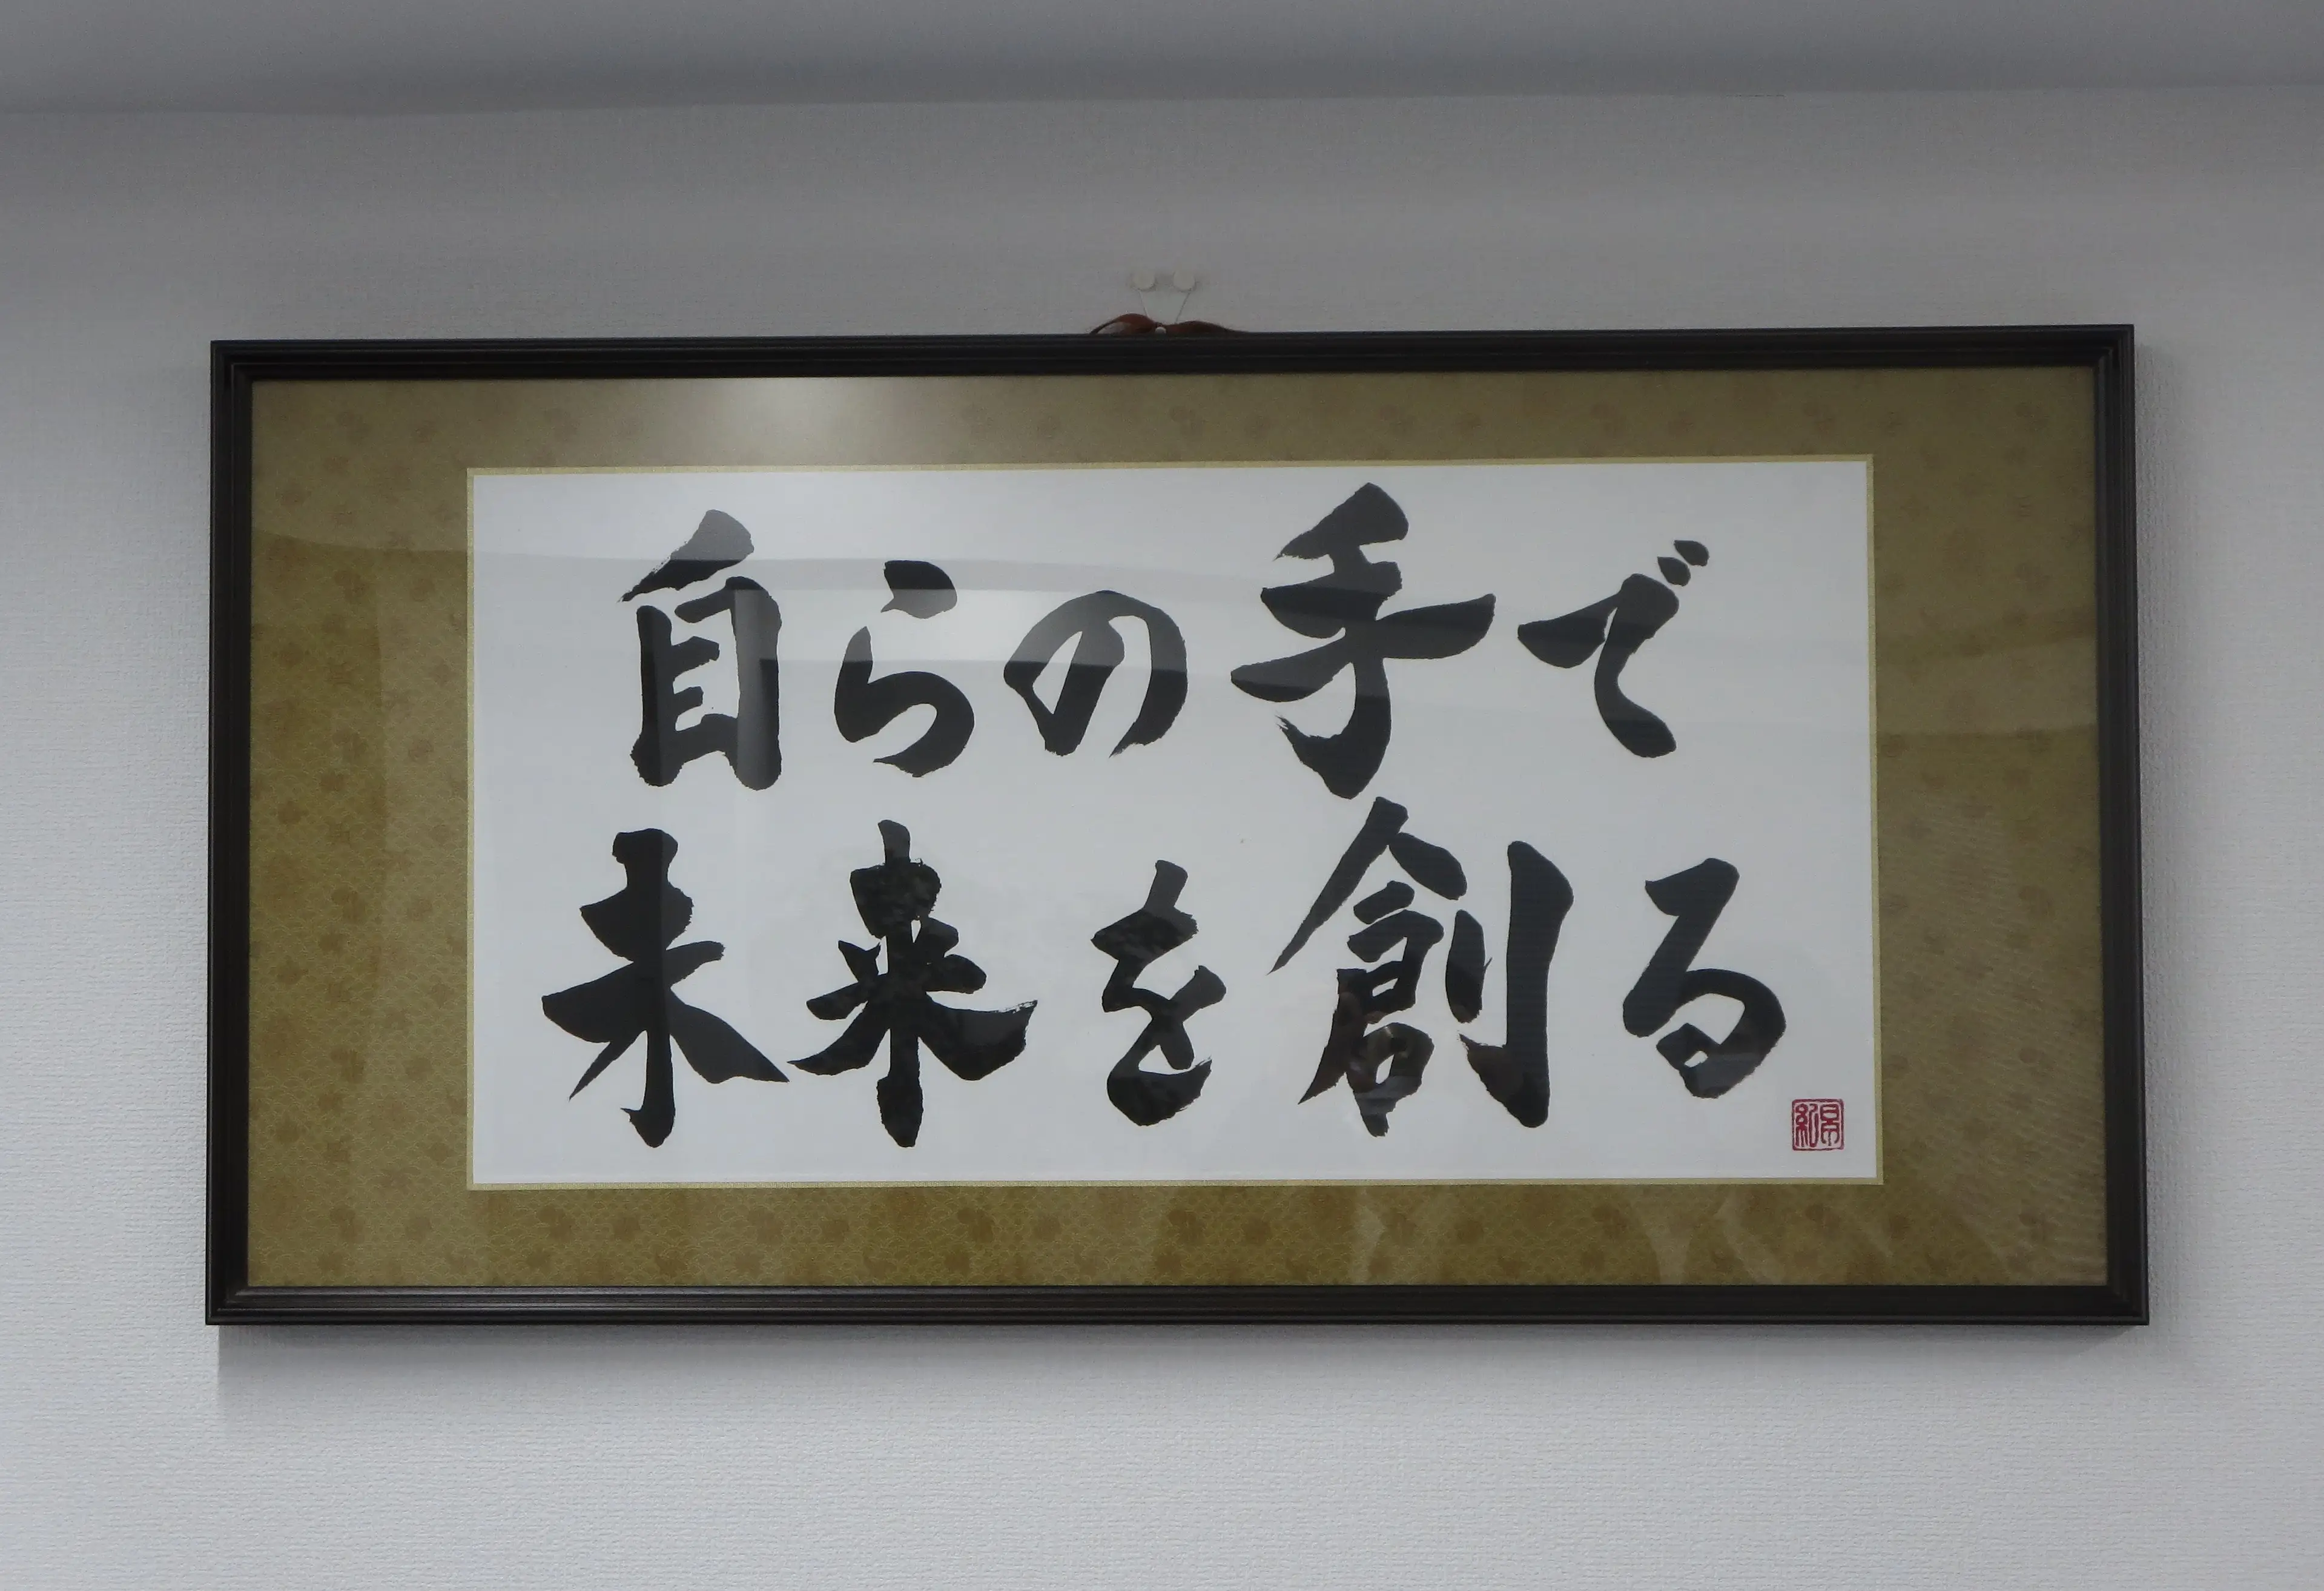 自らの手で
未来を創る